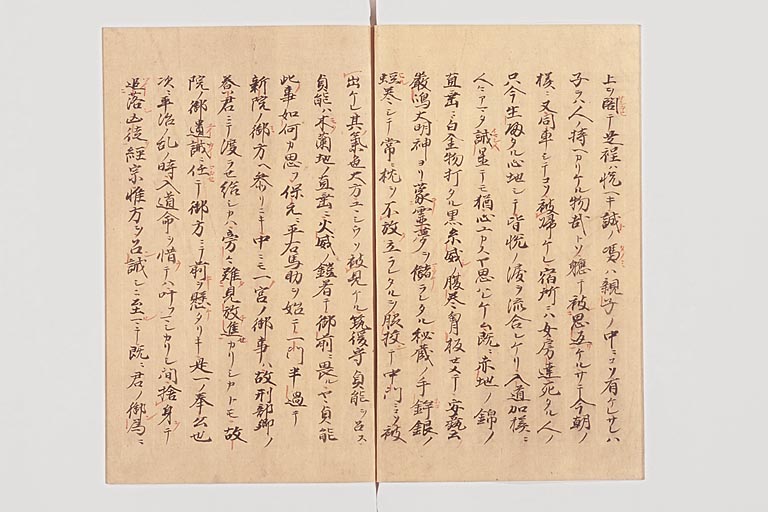 上ヲ閣テ是程ハ悦ヘキ誠ノ馮ハ親子ノ中ニコソ有ケレサレハ
子ヲハ人ノ持ヘカリケル物哉トソ軈テ被思返ケルサテ今朝ノ
様ニ又同車シテコソ被帰ケレ宿所ニハ女房達死タル人ノ
只今生タル心地シテ皆悦ノ涙ヲ流合レケリ入道加様ニ
人ニアマタ誡置テモ猶心ユカスヤ思ハレケム既ニ赤地ノ錦ノ
直垂ニ白金物打タル黒糸威ノ腹巻ニ胸板セメテ安藝云
厳嶋大明神ヨリ蒙霊夢ヲ儲ラレタル秘蔵ノ手鉾銀ノ
蛭巻シテ常ニ枕ヲ不放立ラレタルヲ脇挟テ中門ニコソ被
出ケレ其氣色大方ユヽシクソ被見ケル筑後守貞能ヲ召ス
貞能ハ木蘭地ノ直垂ニ火威ノ鎧着テ御前ニ畏ルヤヽ貞能
此事如何カ思フ保元ニ平右馬助ヲ始テ一門半過テ
新院ノ御方ヘ参リニキ中ニモ一宮ノ御事ハ故刑部卿ノ
養君ニテ渡ラセ給シカハ旁々難見放進カリシカトモ故
院ノ御遺誡ニ任テ御方ニテ前ヲ懸タリキ是一ノ奉公也
次ニ平治ノ乱ノ時入道命ヲ惜テハ叶マシカリシ間捨身テ
追落凶徒經宗惟方ヲ召誡シニ至マテ既ニ君ノ御為ニ